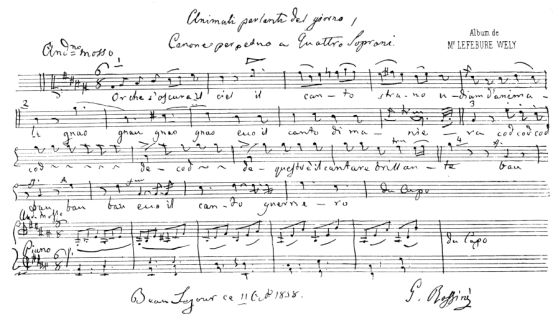 Canone perpetuo a Quattro Soprani.
Album de
Mr LEFEBURE WELY
And.no mosso
1
Or che s'oscura il ciel il can - to stra - no u - diam d'anima -
2
3
li gnao gnau gnao gnao ecco il canto di ma - nie - ra cod cod cod
4
cod de - cod de - questo è il cantare brillan - te bau
bau bau bau ecco il can - to guerrie - ro da Capo
And. mosso
Piano
da Capo
Beau Sejour ce 11 1858.
G. Rossini